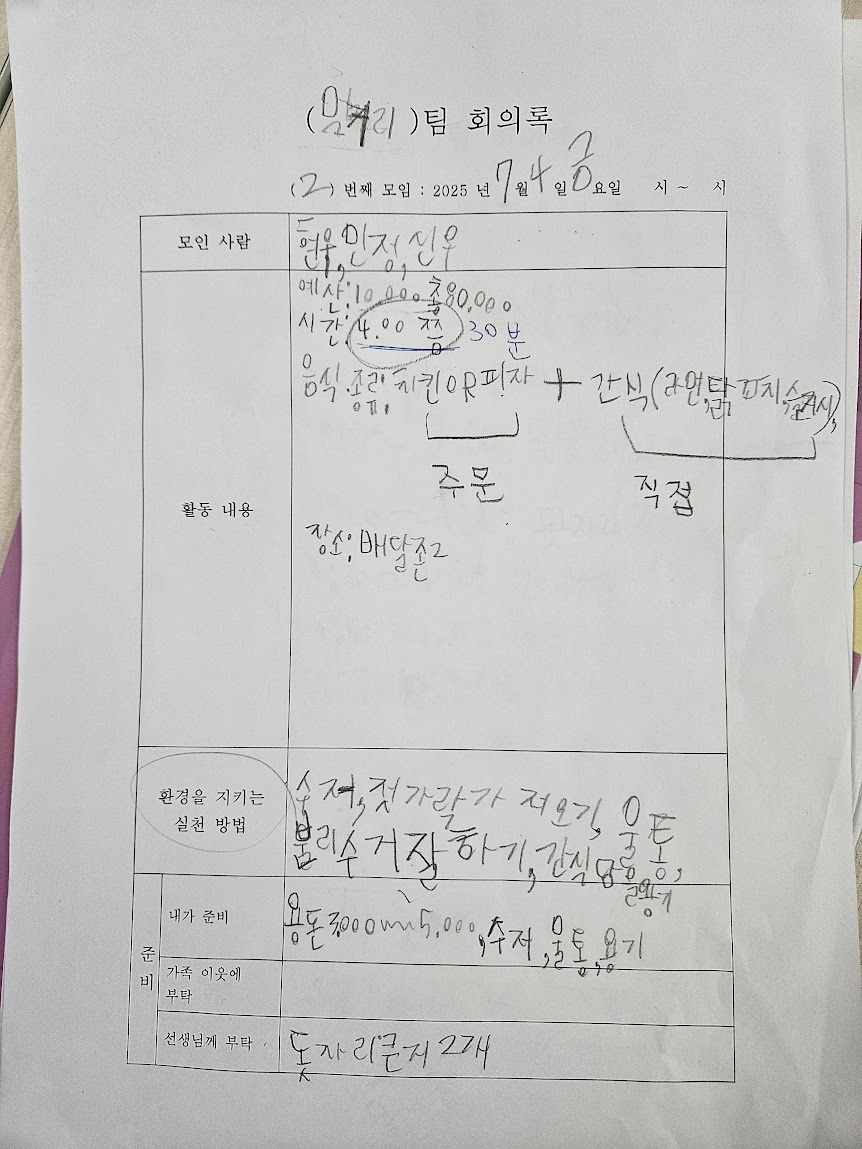 ( )팀 회의록
(2) 번째 모임 : 2025 년 7월 4일 금요일 시 ~ 시
모인 사람
현우, 민정, 신우
활동 내용
예산: 10,000 총80,000
시간: 4.00 쯤 30분
음식 종류, 치킨OR피자 + 간식(라면, 피치,
주문 직접
장소: 배달존2
환경을 지키는
실천 방법
수저, 젓가락가 저오기, 물통,
분리수거잘하기, 간식 담을용기
준비
내가 준비
용돈3,000~5,000, 수저, 물통, 용기
가족 이웃에
부탁
선생님께 부탁
돗자리큰지2개